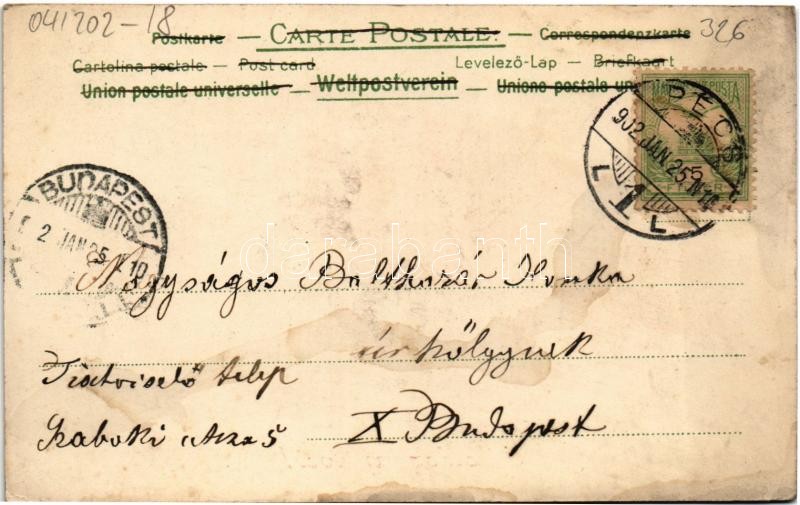 041202-18
326
Postkarte — CARTE POSTALE. — Correspondenzkarte
Cartolina postale — Post card Levelező-Lap — Briefkaart
Union postale universelle — Weltpostverein — Unione postale un
PÉCS
902 JAN 25
L 1 L
BUDAPEST
2 JAN 25
10
darabanth
Nagyságos Balthazár Ilonka
úrhölgynek
Tisztviselő telep
X Budapest
5